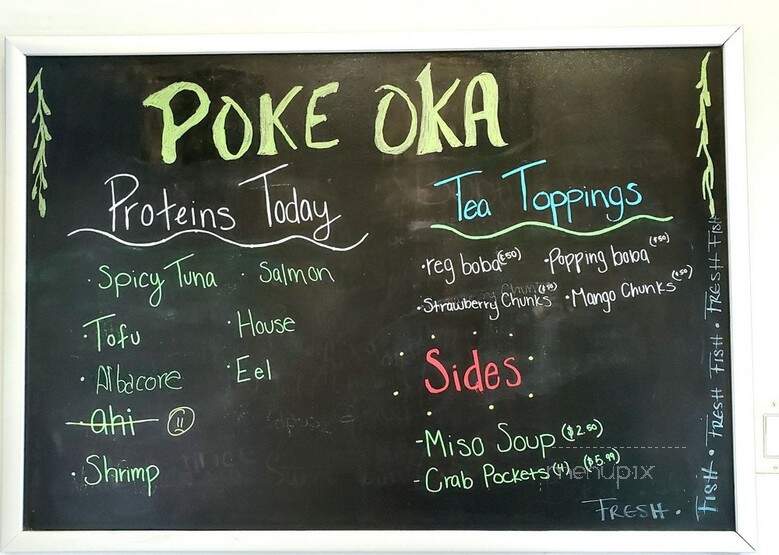 POKE OKA
Proteins Today
· Spicy Tuna
· Salmon
· Tofu
· House
· Albacore
· Eel
· ahi
· Shrimp
Tea Toppings
· reg boba (.50)
· Popping boba ($.50)
· Strawberry Chunks
· Mango Chunks (.50)
Sides
- Miso Soup ($2.50)
- Crab Pockets (4) ($5.99)
FRESH · FISH · FRESH FISH · FRESH FISH
menupix